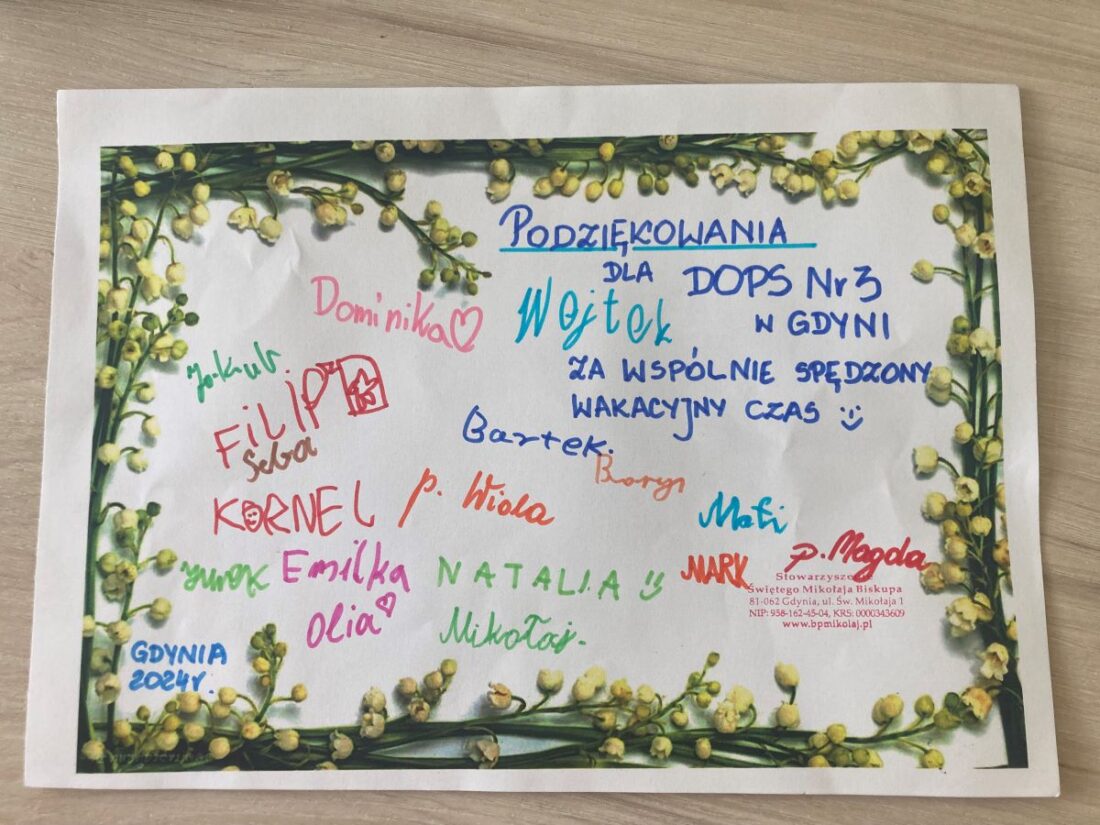 PODZIĘKOWANIA
DLA DOPS Nr 3
W GDYNI
ZA WSPÓLNIE SPĘDZONY
WAKACYJNY CZAS
Dominika
Wojtek
Jakub
FiLIP
Seba
Bartek.
Borys
KORNEL
p. Wiola
Mati
p. Magda
Emilka
NATALIA
MARK
Olia
Mikołaj.
Świętego Mikołaja Biskupa
81-062 Gdynia, ul. Św. Mikołaja 1
NIP: 958-162-45-04, KRS: 0000343609
www.bpmikolaj.pl
GDYNIA
2024r.